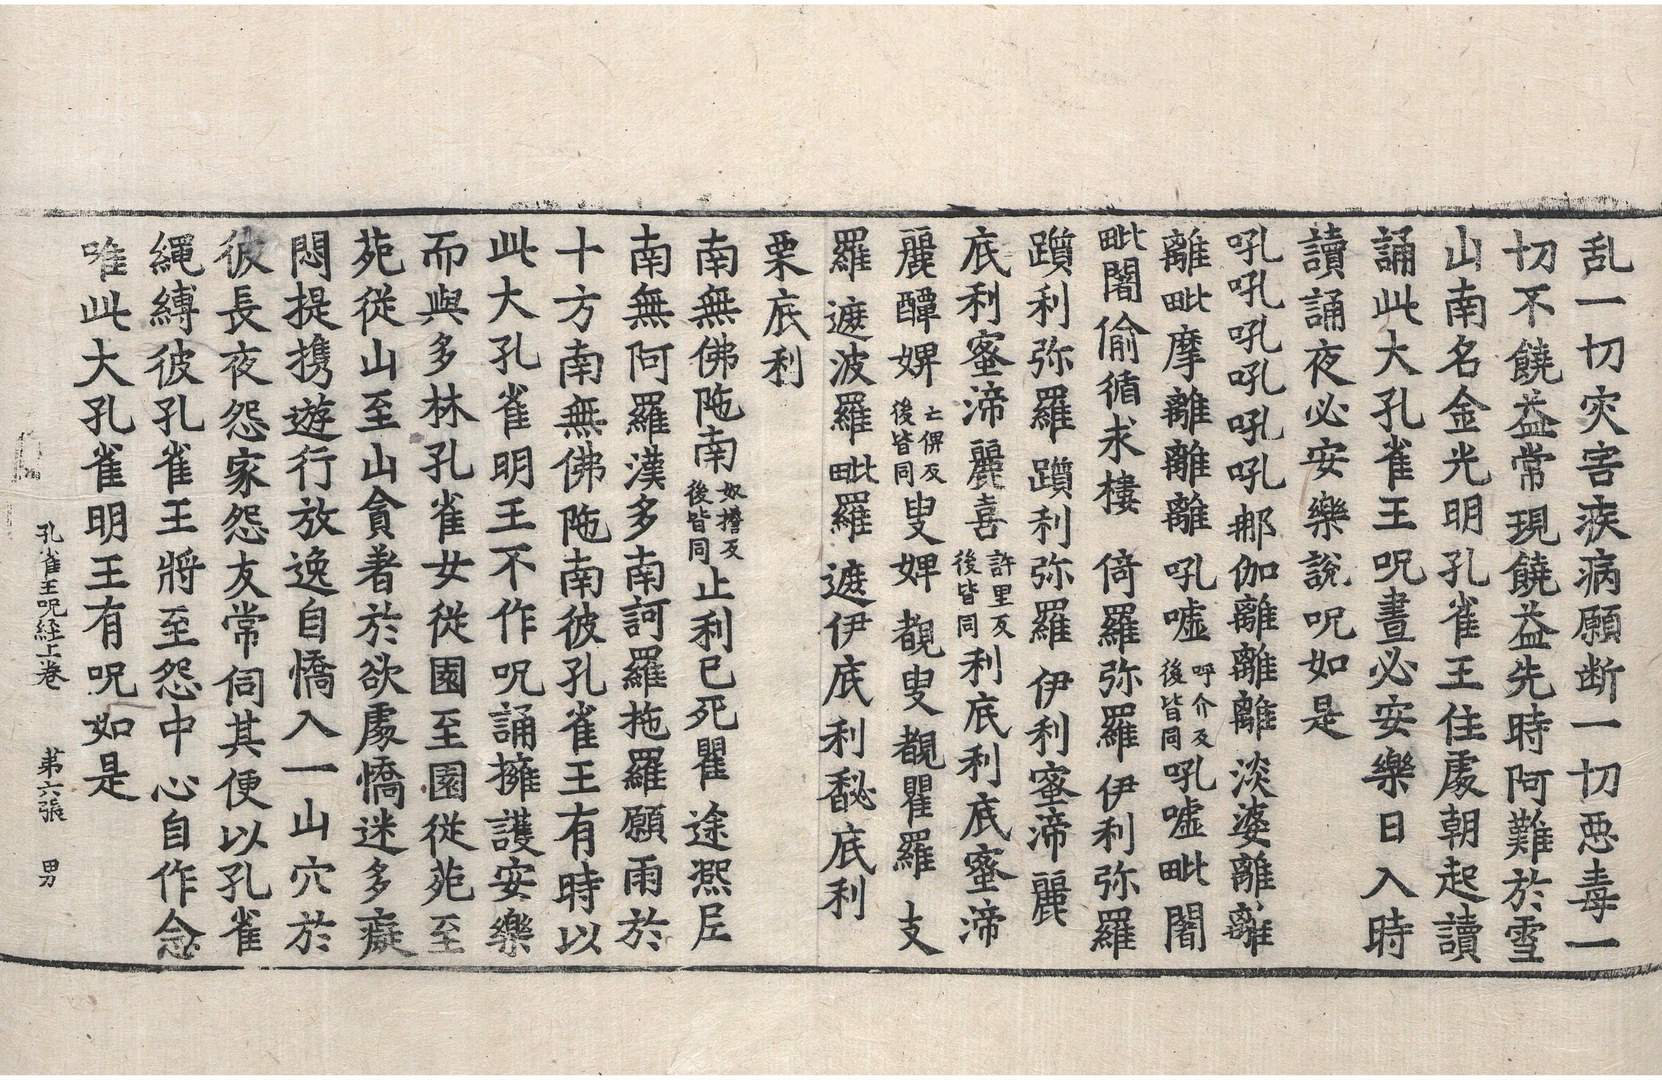 乱一切灾害疾病願断一切惡毒一
切不饒益常現饒益先時阿難於雪
山南名金光明孔雀王住處朝起讀
誦此大孔雀王呪晝必安樂日入時
讀誦夜必安樂說呪如是
吼吼吼吼吼吼那伽離離離淡婆離離
離毗摩離離離吼嘘呼介反後皆同吼嘘毗闍
毗闍偷循求樓 倚羅弥羅 伊利弥羅
躓利弥羅 躓利弥羅 伊利蜜渧麗
底利蜜渧麗喜許里反後皆同利底利底蜜渧
麗醰婢亡俾反後皆同叟婢 覩叟覩瞿羅 支
羅 遮波羅毗羅 遮伊底利馝底利
栗底利
南無佛陁南奴擔反後皆同止利巳死瞿途凞𡰱
南無阿羅漢多南訶羅拖羅願雨於
十方南無佛陁南彼孔雀王有時以
此大孔雀明王不作呪誦擁護安樂
而與多林孔雀女從園至園從苑至
苑從山至山貪著於欲處憍迷多癡
悶提携遊行放逸自憍入一山穴於
彼長夜怨家怨友常伺其便以孔雀
繩縛彼孔雀王將至怨中心自作念
唯此大孔雀明王有呪如是
孔雀王呪經上卷 苐六張 男